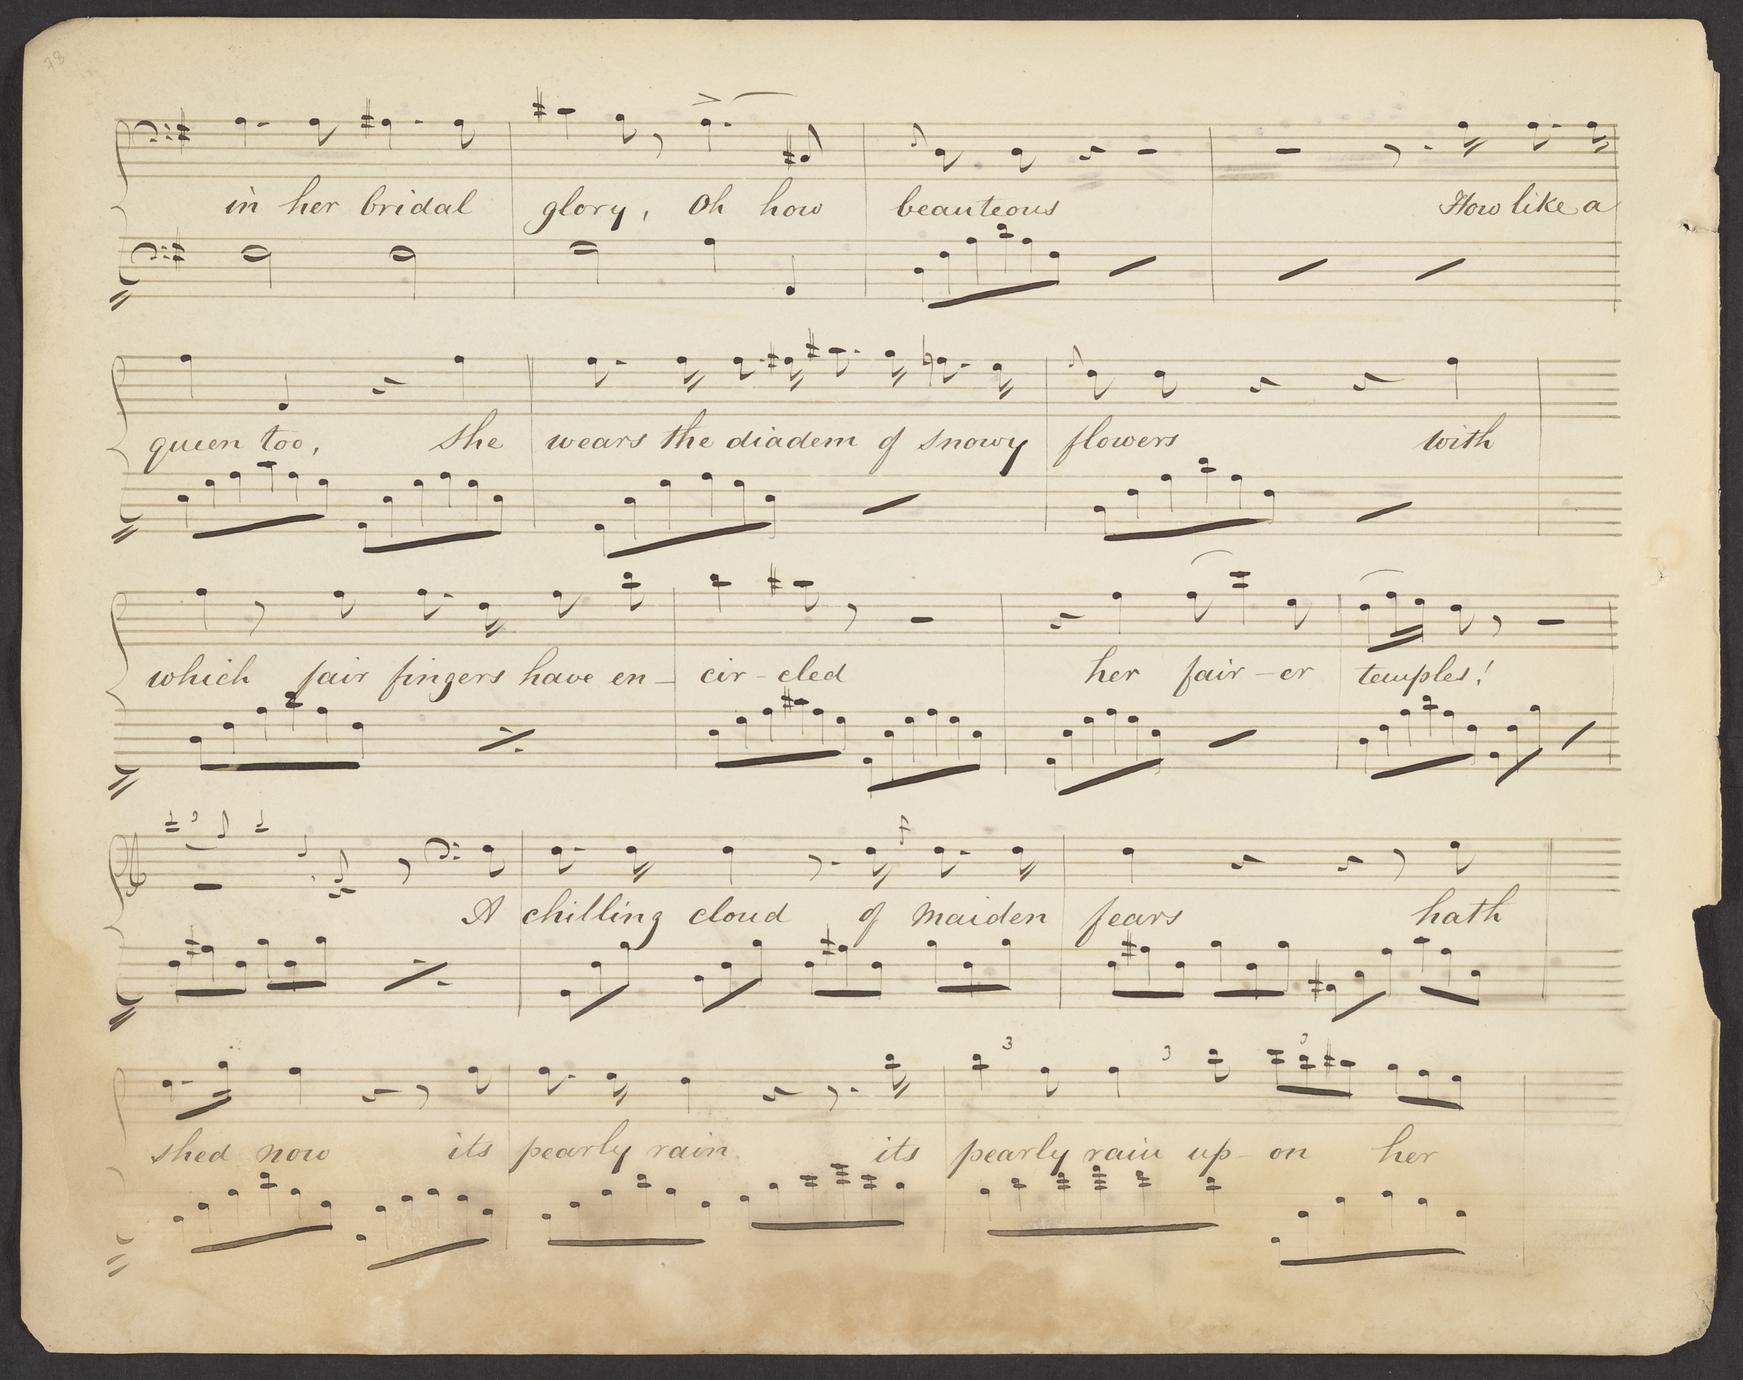 78
in her bridal glory, Oh how beauteous How like a
queen too, She wears the diadem of snowy flowers with
which fair fingers have en- cir-cled her fair-er temples!
3
A chilling cloud of maiden fears hath
3 3 3
shed now its pearly rain its pearly rain up-on her